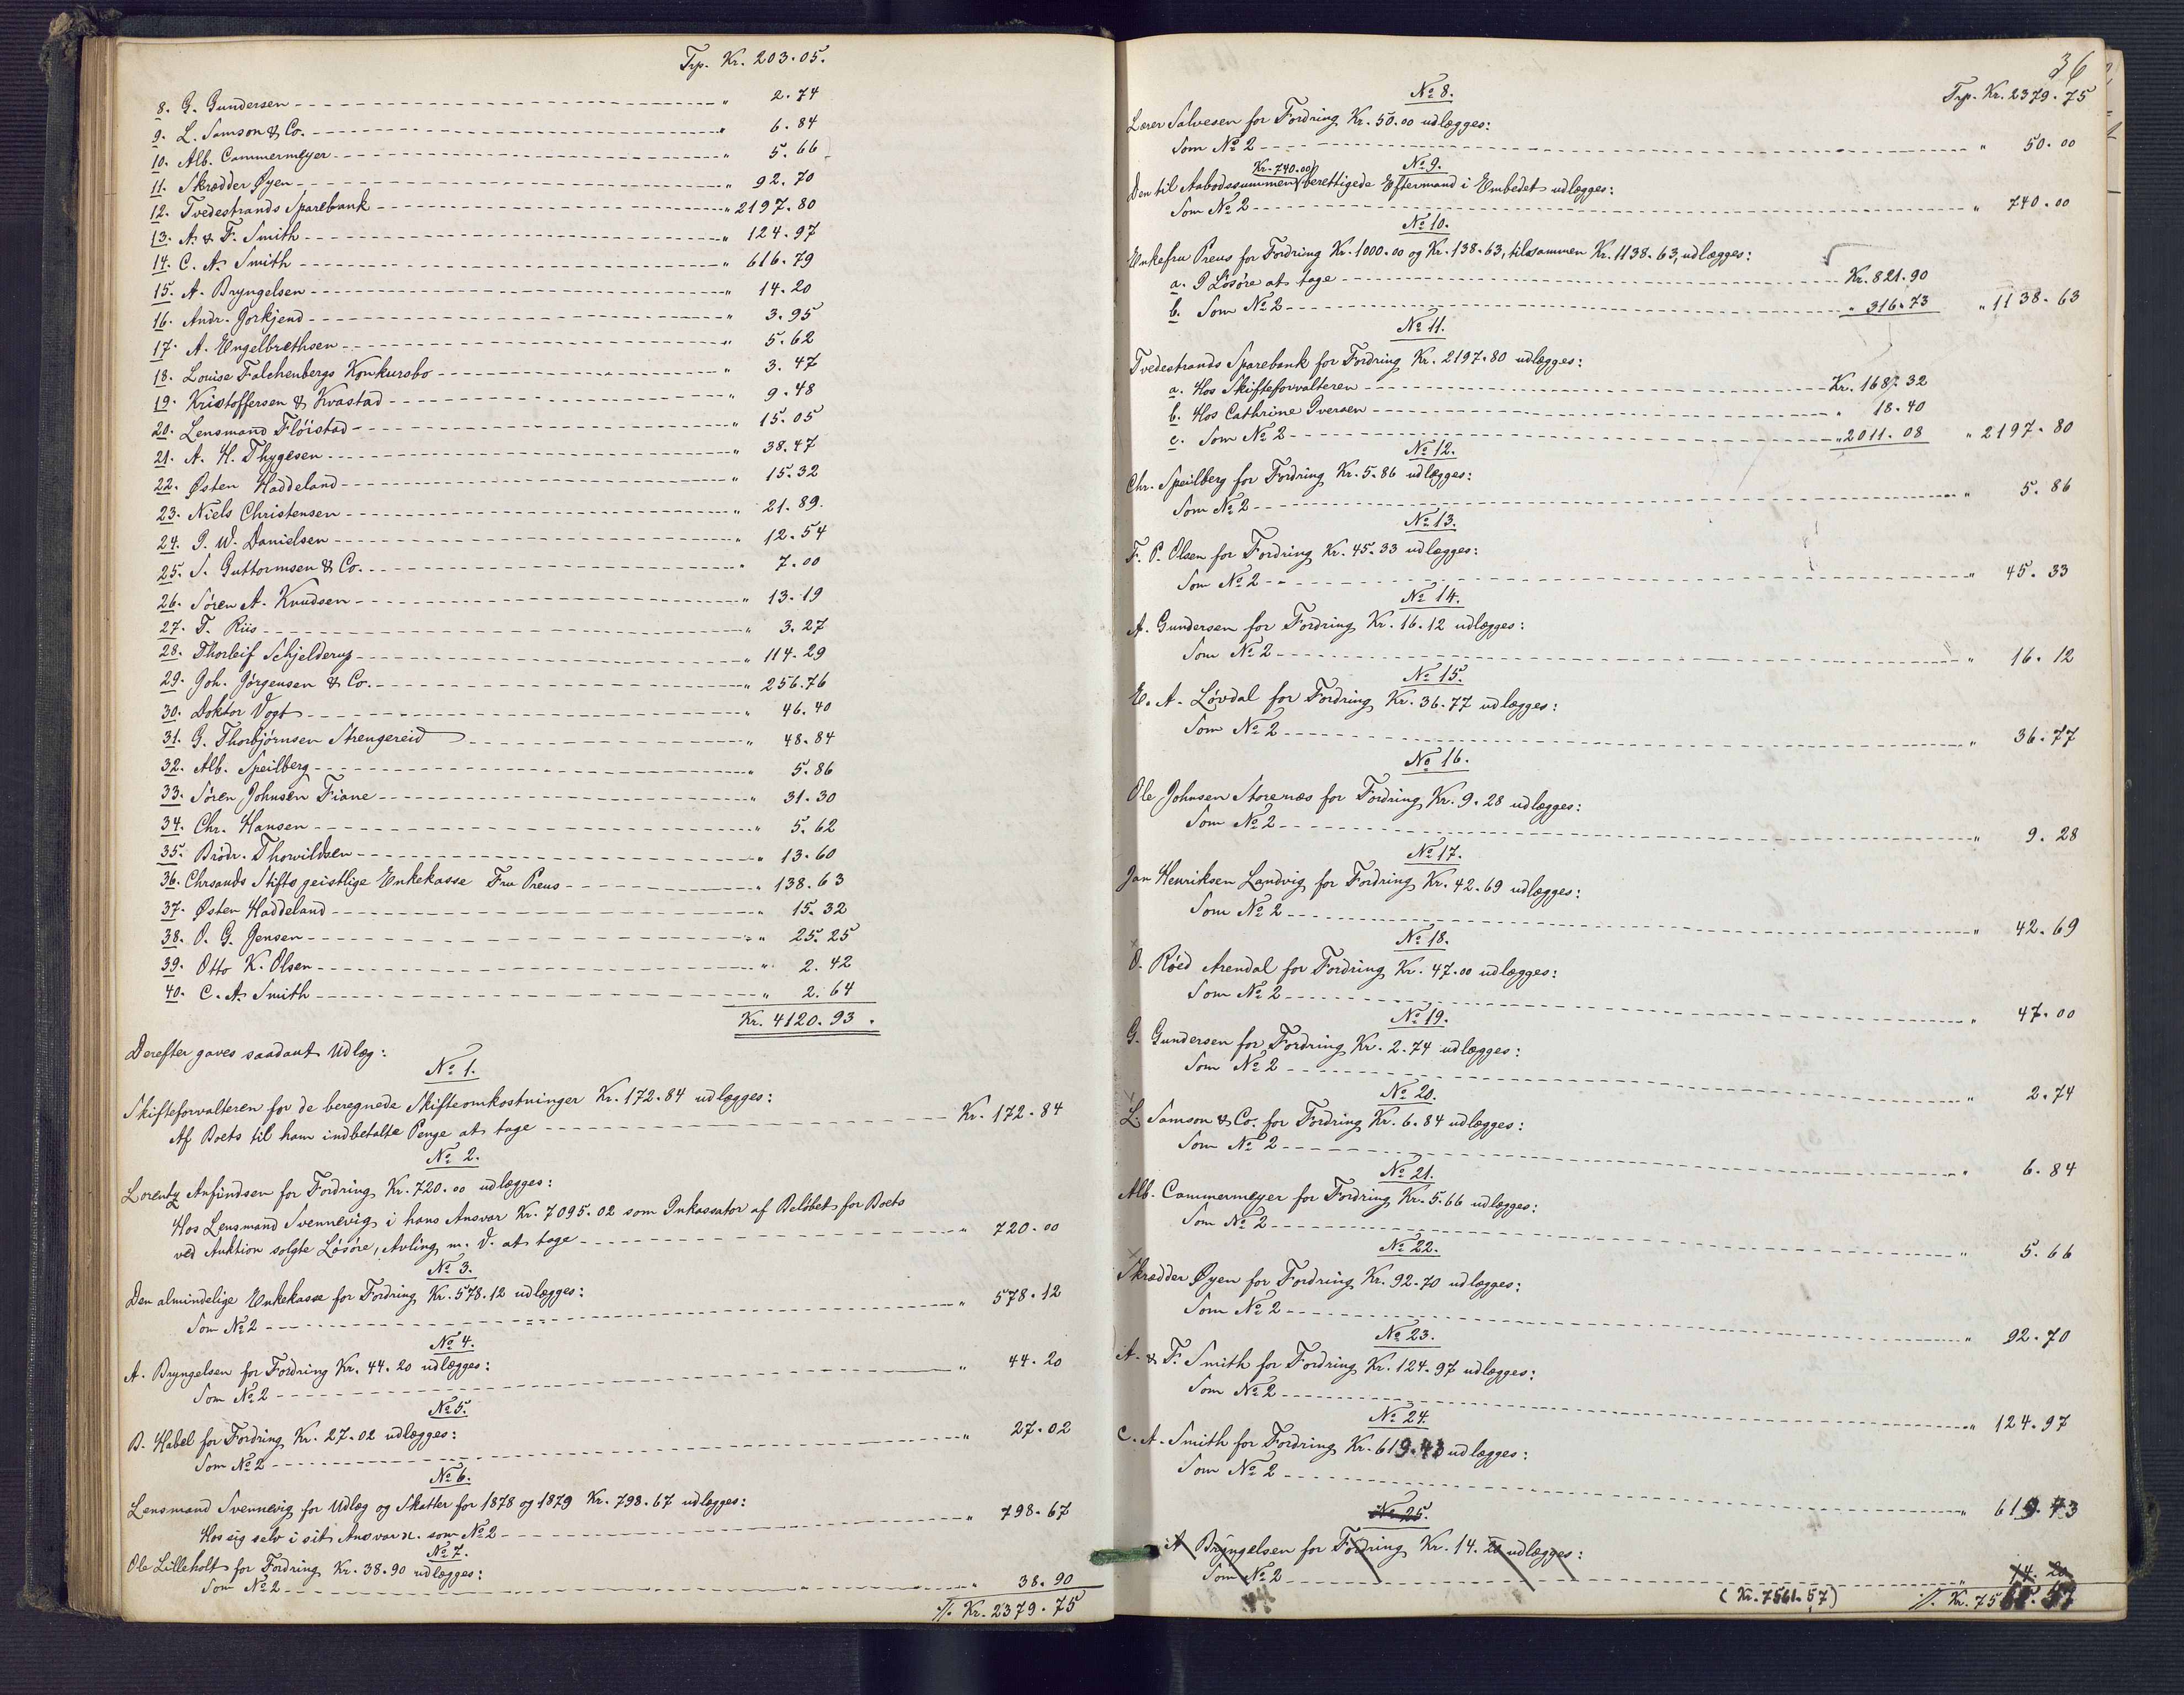 Trp. Kr. 203.05.
8. G. Gundersen " 2.74
9. L. Samson & Co. " 6.84
10. Alb. Cammermeyer " 5.66
11. Skrædder Øyen " 92.70
12. Tvedestrands Sparebank " 2197.80
13. A. & F. Smith " 124.97
14. C. A. Smith " 616.79
15. A. Bryngelsen " 14.20
16. Andr. Gorkjend " 3.95
17. A. Engelbrethsen " 5.62
18. Louise Falchenbergs Konkursbo " 3.47
19. Kristoffersen & Kvastad " 9.48
20. Lensmand Fløistad " 15.05
21. A. H. Thygesen " 38.47
22. Østen Haddeland " 15.32
23. Niels Christensen " 21.89.
24. J. W. Danielsen " 12.54
25. S. Guttormsen & Co. " 7.00
26. Søren A. Knudsen " 13.19
27. T. Riis " 3.27
28. Thorleif Schjelderup " 114.29
29. Joh. Jørgensen & Co. " 256.76
30. Doktor Vogt " 46.40
31. G. Thorbjørnsen Strengereid " 48.84
32. Alb. Speilberg " 5.86
33. Søren Johnsen Fiane " 31.30
34. Chr. Hansen " 5.62
35. Brødr. Thorvildsen " 13.60
36. Chrsands Stifts geistlige Enkekasse Fru Preus " 138.63
37. Østen Haddeland " 15.32
38. P. G. Jensen " 25.25
39. Otto K. Olsen " 2.42
40. C. A. Smith " 2.64
Kr. 4120.93.
Derefter gaves saadant Udlæg:
No 1.
Skifteforvalteren for de beregnede Skifteomkostninger Kr. 172.84 udlægges:
Af Boets til ham indbetalte Penge at tage Kr. 172.84
No 2.
Lorentz Anfindsen for Fordring Kr. 720.00 udlægges:
Hos Lensmand Svennevig i hans Ansvar Kr. 7095.02 som Inkassator af Beløbet for Boets
ved Auktion solgte Løsøre, Avling m. V. at tage " 720.00
No 3.
Den almindelige Enkekasse for Fordring Kr. 578.12 udlægges:
Som No 2 " 578.12
No 4.
A. Bryngelsen for Fordring Kr. 44.20 udlægges:
Som No 2 " 44.20
No 5.
B. Habel for Fordring Kr. 27.02 udlægges:
Som No 2 " 27.02
No 6.
Lensmand Svennevig for Udlæg og Skatter for 1878 og 1879 Kr. 798.67 udlægges:
Hos sig selv i sit Ansvar som No 2 " 798.67
No 7.
Ole Lilleholt for Fordring Kr. 38.90 udlægges:
Som No 2 " 38.90
./. Kr. 2379.75
36
Trp. Kr. 2379.75
No 8.
Lærer Salvesen for Fordring Kr. 50.00 udlægges:
Som No 2 " 50.00
No 9.
Kr. 740.00
Den til Aabodssummen berettigede Eftermand i Embedet udlægges:
Som No 2 " 740.00
No 10.
Enkefru Preus for Fordring Kr. 1000.00 og Kr. 138.63, tilsammen Kr. 1138.63, udlægges:
a. I Løsøre at tage Kr. 821.90
b. Som No 2 " 316.73 " 1138.63
No 11.
Tvedestrands Sparebank for Fordring Kr. 2197.80 udlægges:
a. Hos Skifteforvalteren Kr. 168.32
b. Hos Cathrine Iversen " 18.40
c. Som No 2 " 2011.08 " 2197.80
No 12.
Chr. Speilberg for Fordring Kr. 5.86 udlægges:
Som No 2 " 5.86
No 13.
F. P. Olsen for Fordring Kr. 45.33 udlægges:
Som No 2 " 45.33
No 14.
A. Gundersen for Fordring Kr. 16.12 udlægges:
Som No 2 " 16.12
No 15.
E. A. Løvdal for Fordring Kr. 36.77 udlægges:
Som No 2 " 36.77
No 16.
Ole Johnsen Storenæs for Fordring Kr. 9.28 udlægges:
Som No 2 " 9.28
No 17.
Jan Henriksen Landvig for Fordring Kr. 42.69 udlægges:
Som No 2 " 42.69
No 18.
O. Røed Arendal for Fordring Kr. 47.00 udlægges:
Som No 2 " 47.00
No 19.
G. Gundersen for Fordring Kr. 2.74 udlægges:
Som No 2 " 2.74
No 20.
L. Samson & Co. for Fordring Kr. 6.84 udlægges:
Som No 2 " 6.84
No 21.
Alb. Cammermeyer for Fordring Kr. 5.66 udlægges:
Som No 2 " 5.66
No 22.
Skrædder Øyen for Fordring Kr. 92.70 udlægges:
Som No 2 " 92.70
No 23.
A. & F. Smith for Fordring Kr. 124.97 udlægges:
Som No 2 " 124.97
No 24.
C. A. Smith for Fordring Kr. 619.43 udlægges:
Som No 2 " 619.43
No 25.
A Bryngelsen for Fordring Kr. 14.20 udlægges:
Som No 2 " 14.20
(Kr. 7561.57) ./. Kr. 7561.57